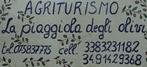 AGRITURISMO
La piaggiola degli olivi
tel.075837775 cell. 3383231182
3491429368